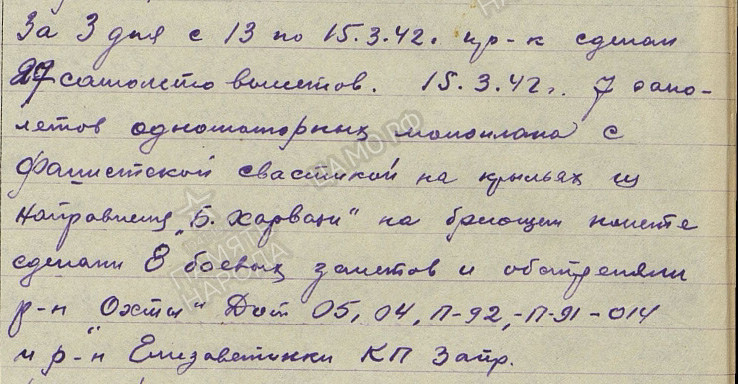 За 3 дня с 13 по 15.3.42г. пр-к сделал
27 самолето вылетов. 15.3.42г. 7 само-
летов одномоторных моноплана с
фашистской свастикой на крыльях из
направления „Б. Харвази" на бреющем полете
сделали 8 боевых залетов и обстреляли
р-н „Охты" Дот 05, 04, П-92, -П-91-014
и р-н Елизаветинки КП Запр.
ПАМЯТЬ НАРОДА
ЦАМО.РФ